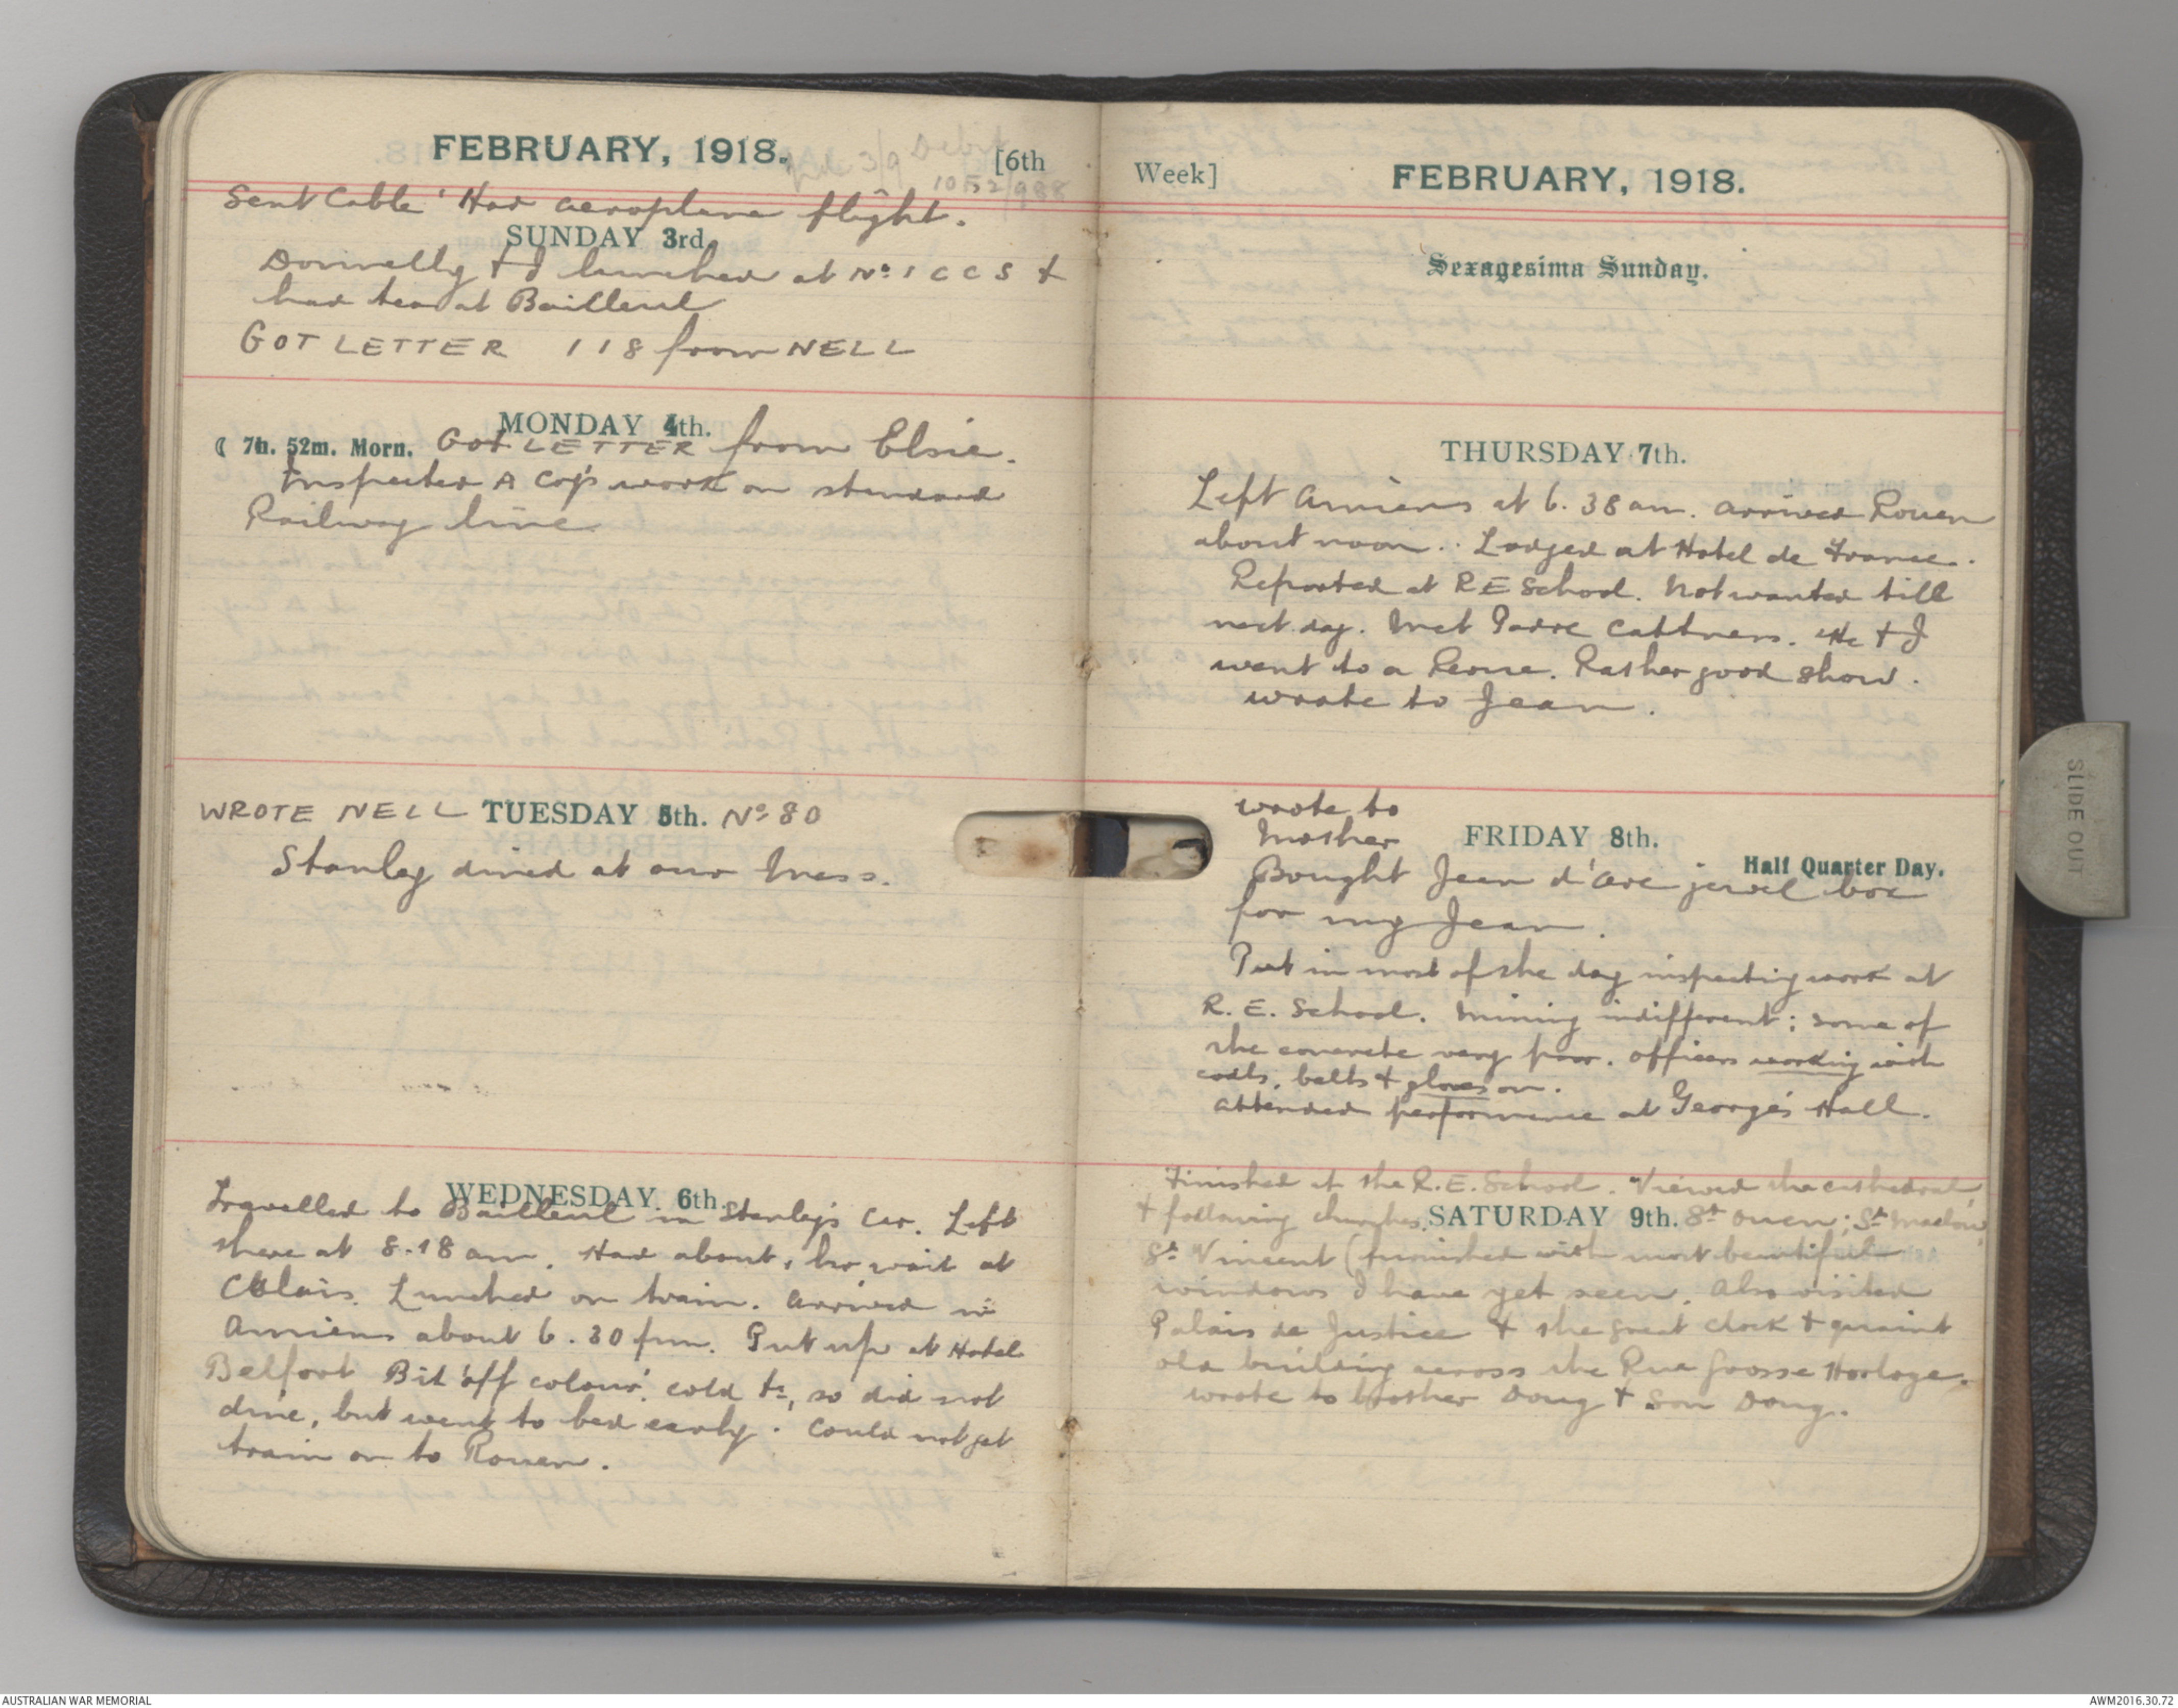 FEBRUARY, 1918. pd 3/9 Debit [6th
1052/988
Sent Cable. Had aeroplane flight.
SUNDAY 3rd.
Donnelly & I lunched at No 1 C C S &
had tea at Bailleul
GOT LETTER 118 from NELL
MONDAY 4th.
☾ 7h. 52m. Morn. GOT LETTER from Elsie.
Inspected A Coy's work on standard
Railway line
WROTE NELL TUESDAY 5th. No 80
Stanley dined at our Mess.
WEDNESDAY 6th.
Travelled to Bailleul in Stanley's Car. Left
there at 8.18 am. Had about 1 hr wait at
Calais. Lunched on train. Arrived in
Amiens about 6.30 pm. Put up at Hotel
Belfort Bit 'off colour'. cold &c, so did not
dine, but went to bed early. Could not get
train on to Rouen.
Week] FEBRUARY, 1918.
Sexagesima Sunday.
THURSDAY 7th.
Left Amiens at 6.38 am. Arrived Rouen
about noon. Lodged at Hotel de France.
Reported at R E School. Not wanted till
next day. Met Padre. He & I
went to a Revue. Rather good show.
Wrote to Jean.
Wrote to
Mother FRIDAY 8th.
Half Quarter Day.
Bought Jean d'Arc jewel box
for my Jean.
Put in most of the day inspecting work at
R. E. School. Mining indifferent; some of
the concrete very poor. Officers working with
coats, belts & gloves on.
Attended performance at George's Hall.
Finished at the R.E. School. Viewed the cathedral
& following churches. SATURDAY 9th. St Ouen; St Maclou,
St Vincent (furnished with most beautiful
windows I have yet seen. Also visited
Palais de Justice & the great clock & quaint
old building across the Rue Grosse Horloge.
Wrote to brother Doug & Son Doug.
SLIDE OUT
AUSTRALIAN WAR MEMORIAL AWM2016.30.72